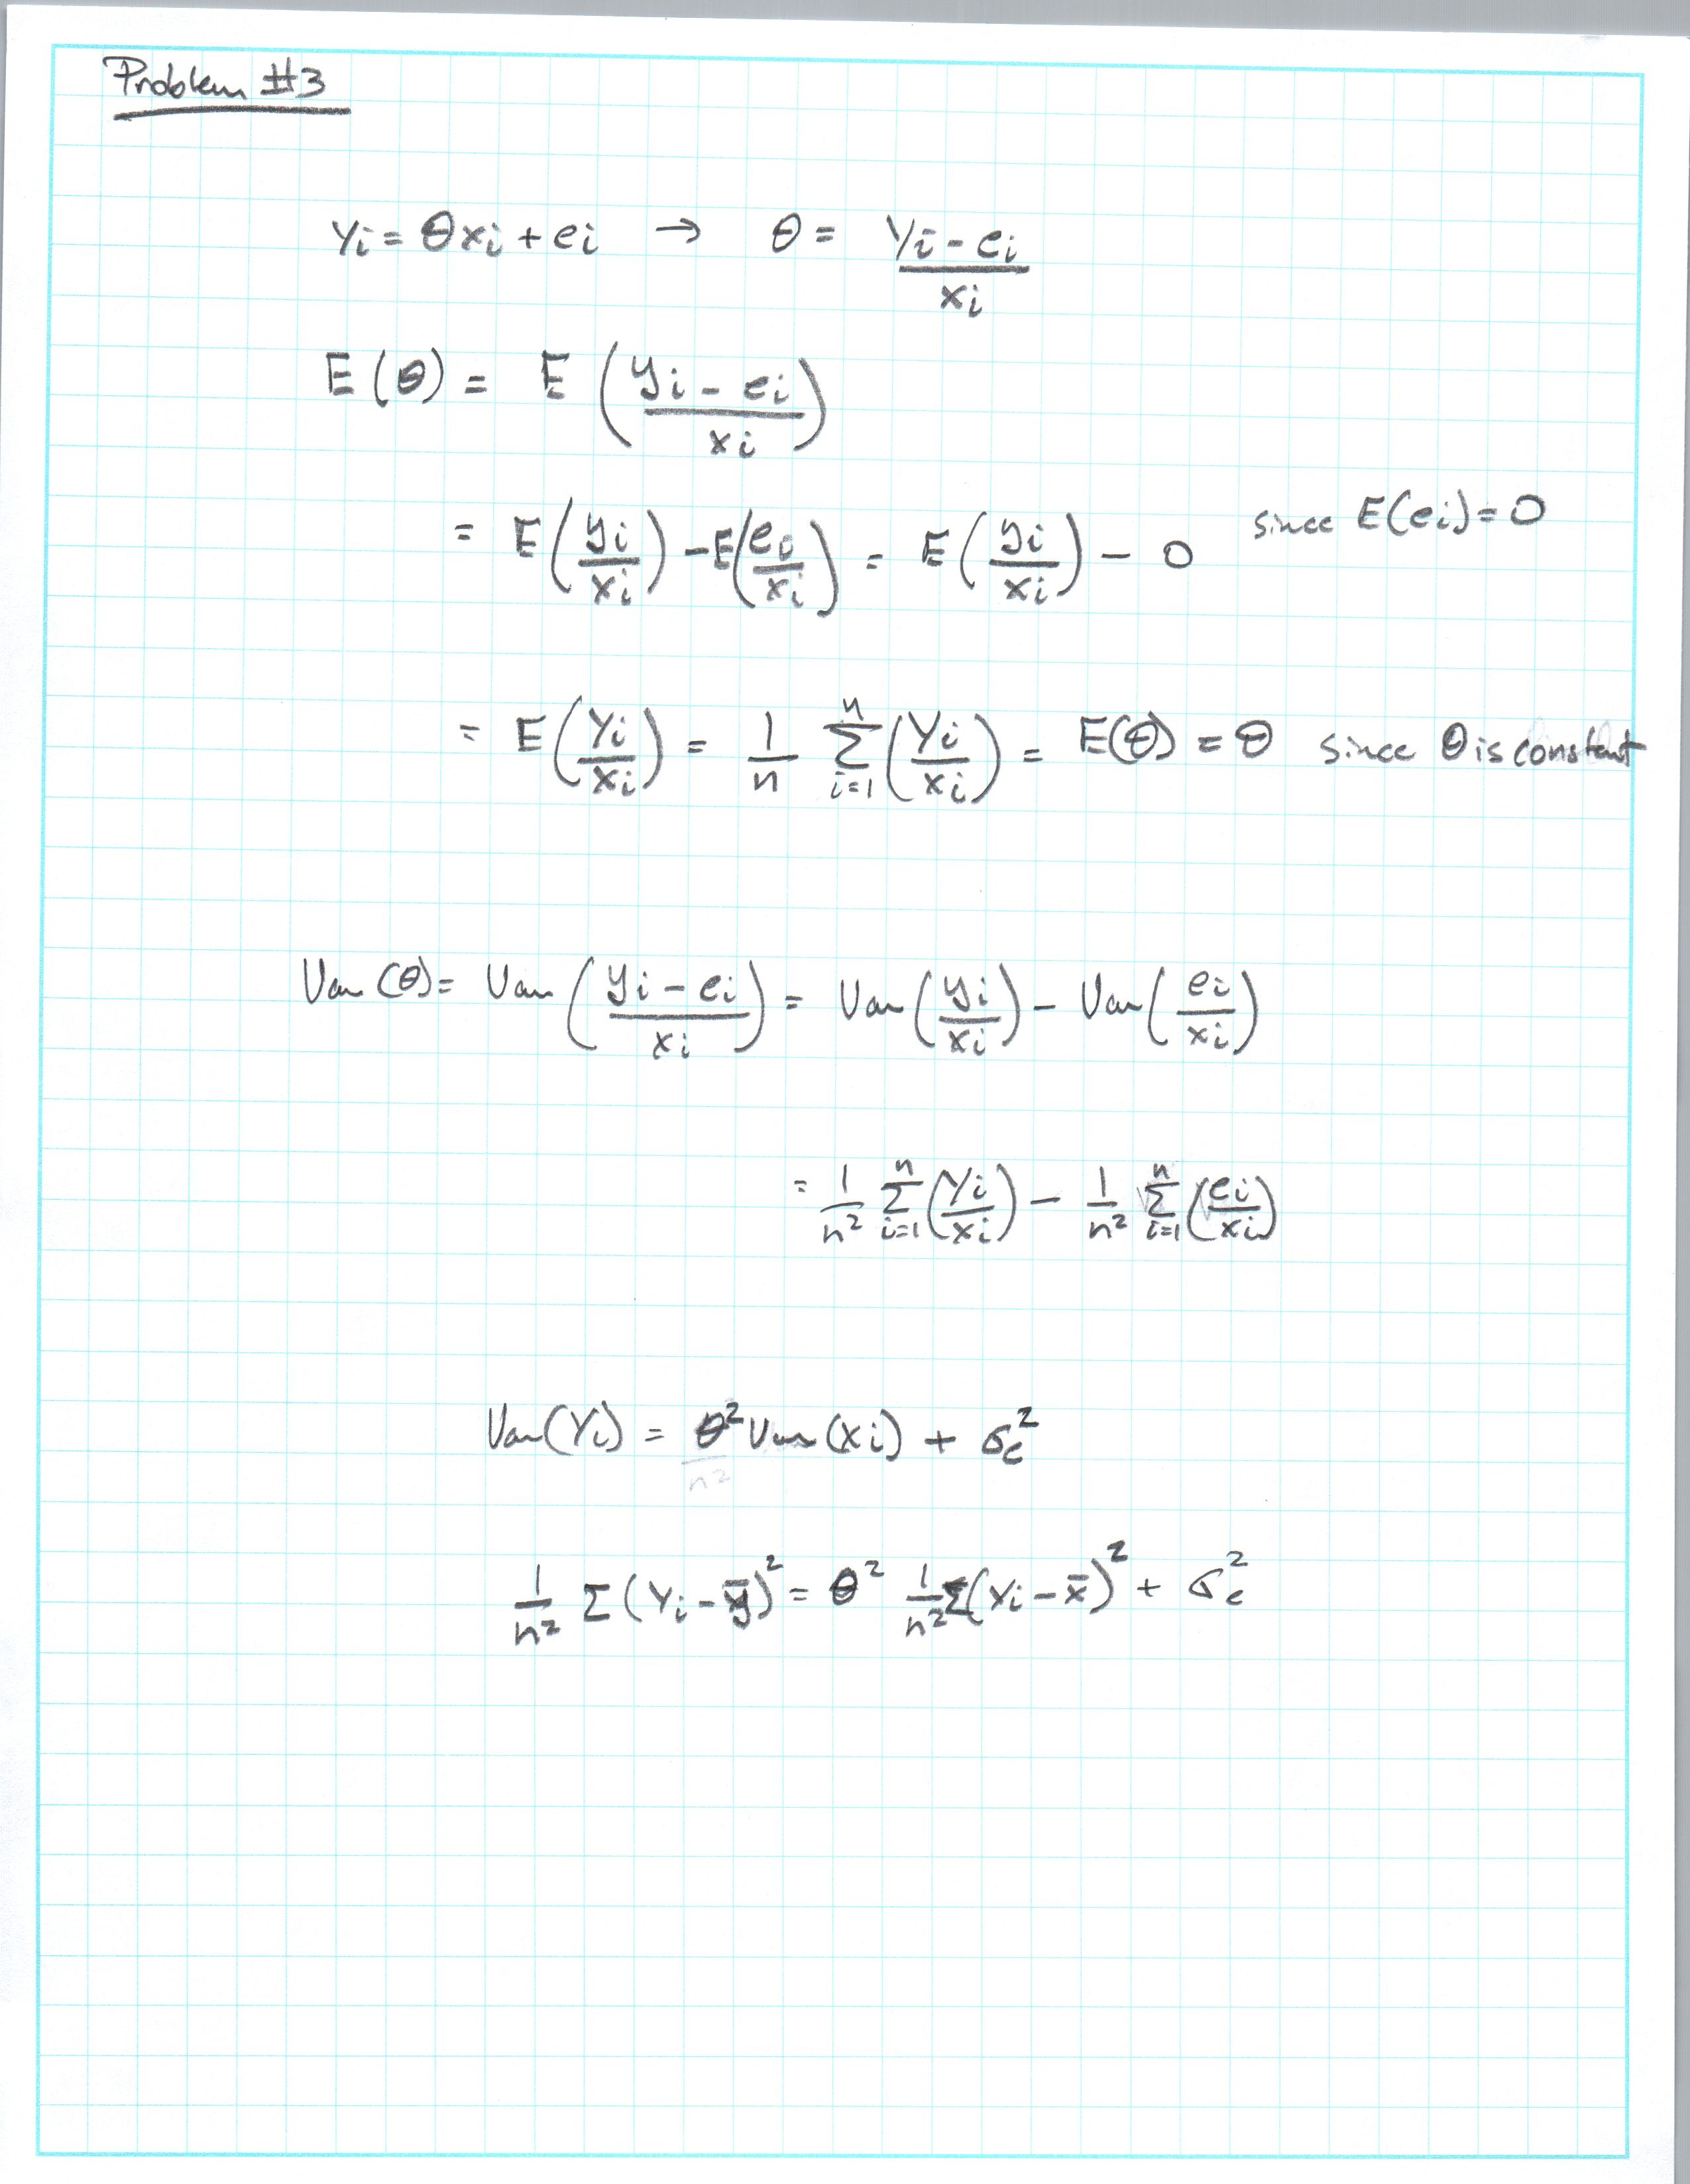 Problem #3
yi = θxi + ei → θ = (yi - ei)/xi
E(θ) = E((yi - ei)/xi)
= E(yi/xi) - E(ei/xi) = E(yi/xi) - 0 since E(ei) = 0
= E(yi/xi) = 1/n Σ_{i=1}^{n} (yi/xi) = E(θ) = θ since θ is constant
Var(θ) = Var((yi - ei)/xi) = Var(yi/xi) - Var(ei/xi)
= 1/n² Σ_{i=1}^{n} (yi/xi) - 1/n² Σ_{i=1}^{n} (ei/xi)
Var(Yi) = θ² Var(xi) + σe²
n²
1/n² Σ(Yi - ȳ)² = θ² 1/n² Σ(xi - x̄)² + σe²